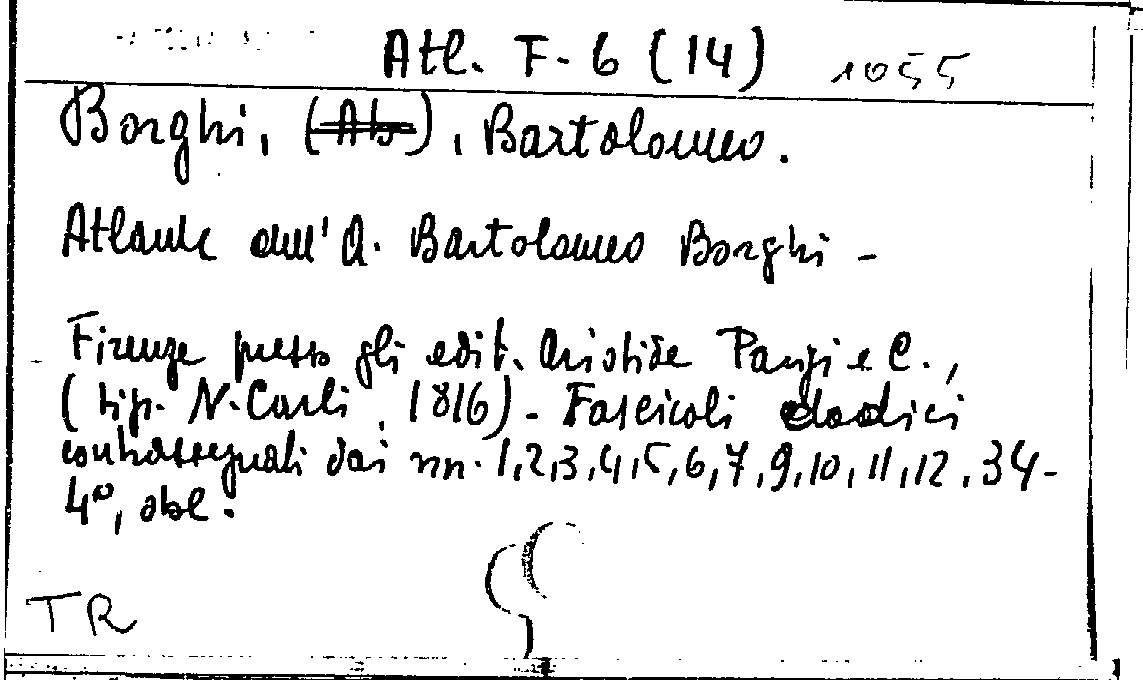 Atl. F-6 (14) 1055
Borghi, (Ab), Bartolomeo.
Atlante dell'A. Bartolomeo Borghi -
Firenze presso gli edit. Aristide Parigi e C.,
(tip. N. Carli, 1816) - Fascicoli dodici
contrassegnati dai nn. 1,2,3,4,5,6,7,9,10,11,12,34-
4°, obl.
TR